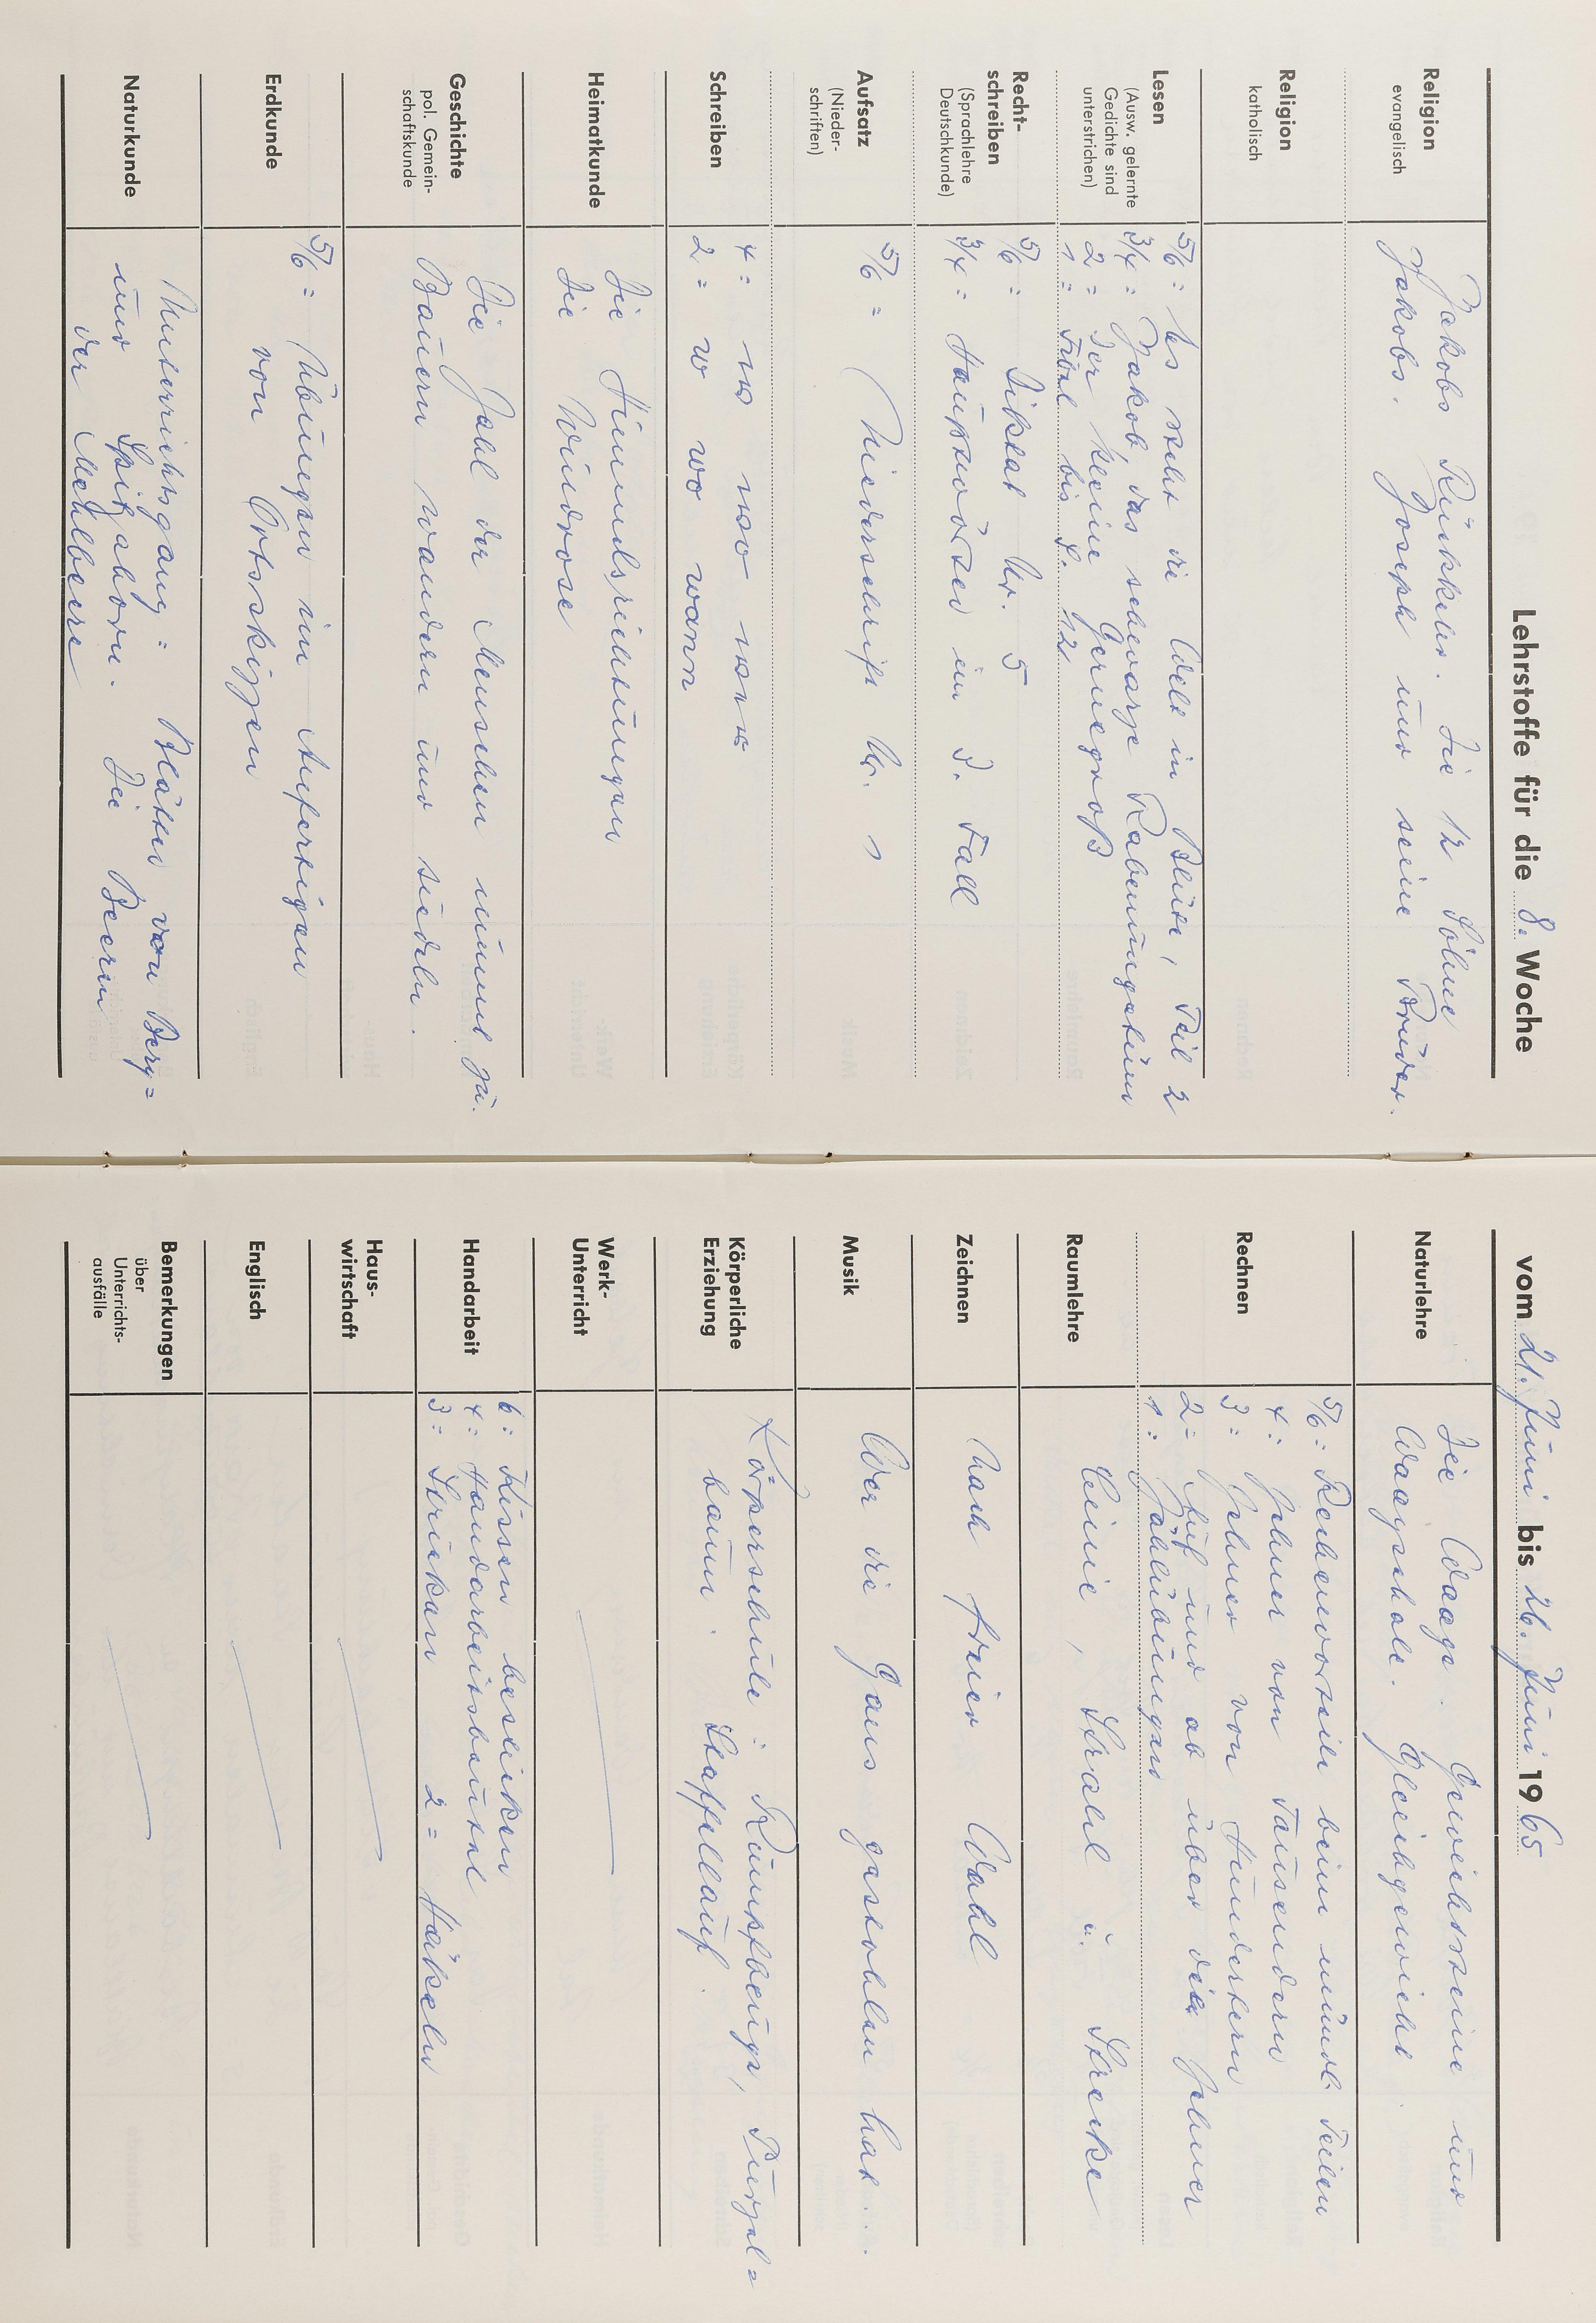 Lehrstoffe für die 8. Woche
Religion
evangelisch
Jakobs Rückkehr. Die 12 Söhne
Jakobs. Joseph und seine Brüder.
Religion
katholisch
Lesen
(Ausw. gelernte
Gedichte sind
unterstrichen)
5/6 = Es steht die Welt in Blüte, Teil 2
3/4 = Jakob, das schwarze Rabenungetüm
2 = Der kleine Gernegroß
1 = Fibel bis S. 12
Recht-
schreiben
(Sprachlehre
Deutschkunde)
5/6 = Diktat Nr. 5
3/4 = Hauptwörter im 3. Fall
Aufsatz
(Nieder-
schriften)
5/6 = Niederschrift Nr. 1
Schreiben
4 =
2 = w wo wann
Heimatkunde
Die Himmelsrichtungen
Die Windrose
Geschichte
pol. Gemein-
schaftskunde
Die Zahl der Menschen nimmt zu.
Bauern wandern und siedeln.
Erdkunde
5/6 = Übungen im Anfertigen
von Ortsskizzen
Naturkunde
Unterrichtsgang = Blätter von Berg=
und Spitzahorn. Die Beeren
der Mehlbeere
vom 21. Juni bis 26. Juni 1965
Naturlehre
Die Waage. Gewichtsteine und
Waagschale. Gleichgewicht.
Rechnen
5/6 = Rechenvorteile beim mündl. Teilen
4 = Zehner von Tausendern
3 = Zehner von Hundertern
2 = Auf und ab über den Zehner
1 = Zählübungen
Raumlehre
Linie, Strahl u. Strecke
Zeichnen
Nach freier Wahl
Musik
Wer die Gans gestohlen hat...
Körperliche
Erziehung
Körperschule: Rumpfbeuge, Purzel=
baum. Staffellauf.
Werk-
Unterricht
Handarbeit
6 = Kissen besticken
4 = Handarbeitsbeutel
3 = Stricken 2 = Häkeln
Haus-
wirtschaft
Englisch
Bemerkungen
über
Unterrichts-
ausfälle